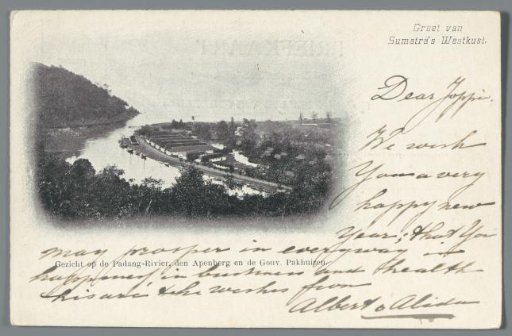 Groet van
Sumatra's Westkust.
Dear Joppie.
We wish
You a very
happy new
Year; that You
may prosper in everyway in
Gezicht op de Padang-Rivier, den Apenberg en de Gouv. Pakhuizen.
happiness in business and health
the wishes from
Albert & Alida